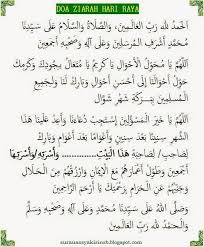 DOA ZIARAH HARI RAYA
الْحَمْدُ لِلَّهِ رَبِّ الْعَالَمِيْنَ، وَالصَّلَاةُ وَالسَّلَامُ عَلَى سَيِّدِنَا
مُحَمَّدٍ أَشْرَفِ الْمُرْسَلِيْنَ وَعَلَى آلِهِ وَصَحْبِهِ أَجْمَعِيْنَ
اللَّهُمَّ يَا مُحَوِّلَ الْأَحْوَالِ يَا كَرِيْمُ يَا مُتَعَالُ بِجُودِكَ وَكَرَمِكَ
حَوِّلْ أَحْوَالَنَا إِلَى أَحْسَنِ الْأَحْوَالِ وَبَارِكْ لَنَا وَلِجَمِيْعِ
الْمُسْلِمِيْنَ بِبَرَكَةِ شَهْرِ شَوَّالَ
اللَّهُمَّ يَا خَيْرَ
دُعَاءَنَا وَأَعِدْ عَلَيْنَا هَذَا
الشَّهْرَ سِنِيْنَا بَعْدَ سِنِيْنَ وَأَعْوَامًا بَعْدَ أَعْوَامٍ وَبَارِكْ
هَذَا الْبَيْتِ
وَطَوِّلْ أَعْمَارَهُمْ مَعَ الْإِيْمَانِ وَارْزُقْهُمْ
عَنِ الْحَرَامِ بِرَحْمَتِكَ يَا أَرْحَمَ الرَّاحِمِيْنَ
وَصَلَّى اللهُ عَلَى سَيِّدِنَا مُحَمَّدٍ وَعَلَى آلِهِ وَصَحْبِهِ وَسَلَّمَ
وَالْحَمْدُ لِلَّهِ رَبِّ الْعَالَمِيْنَ
surauassyakirin8.blogspot.com